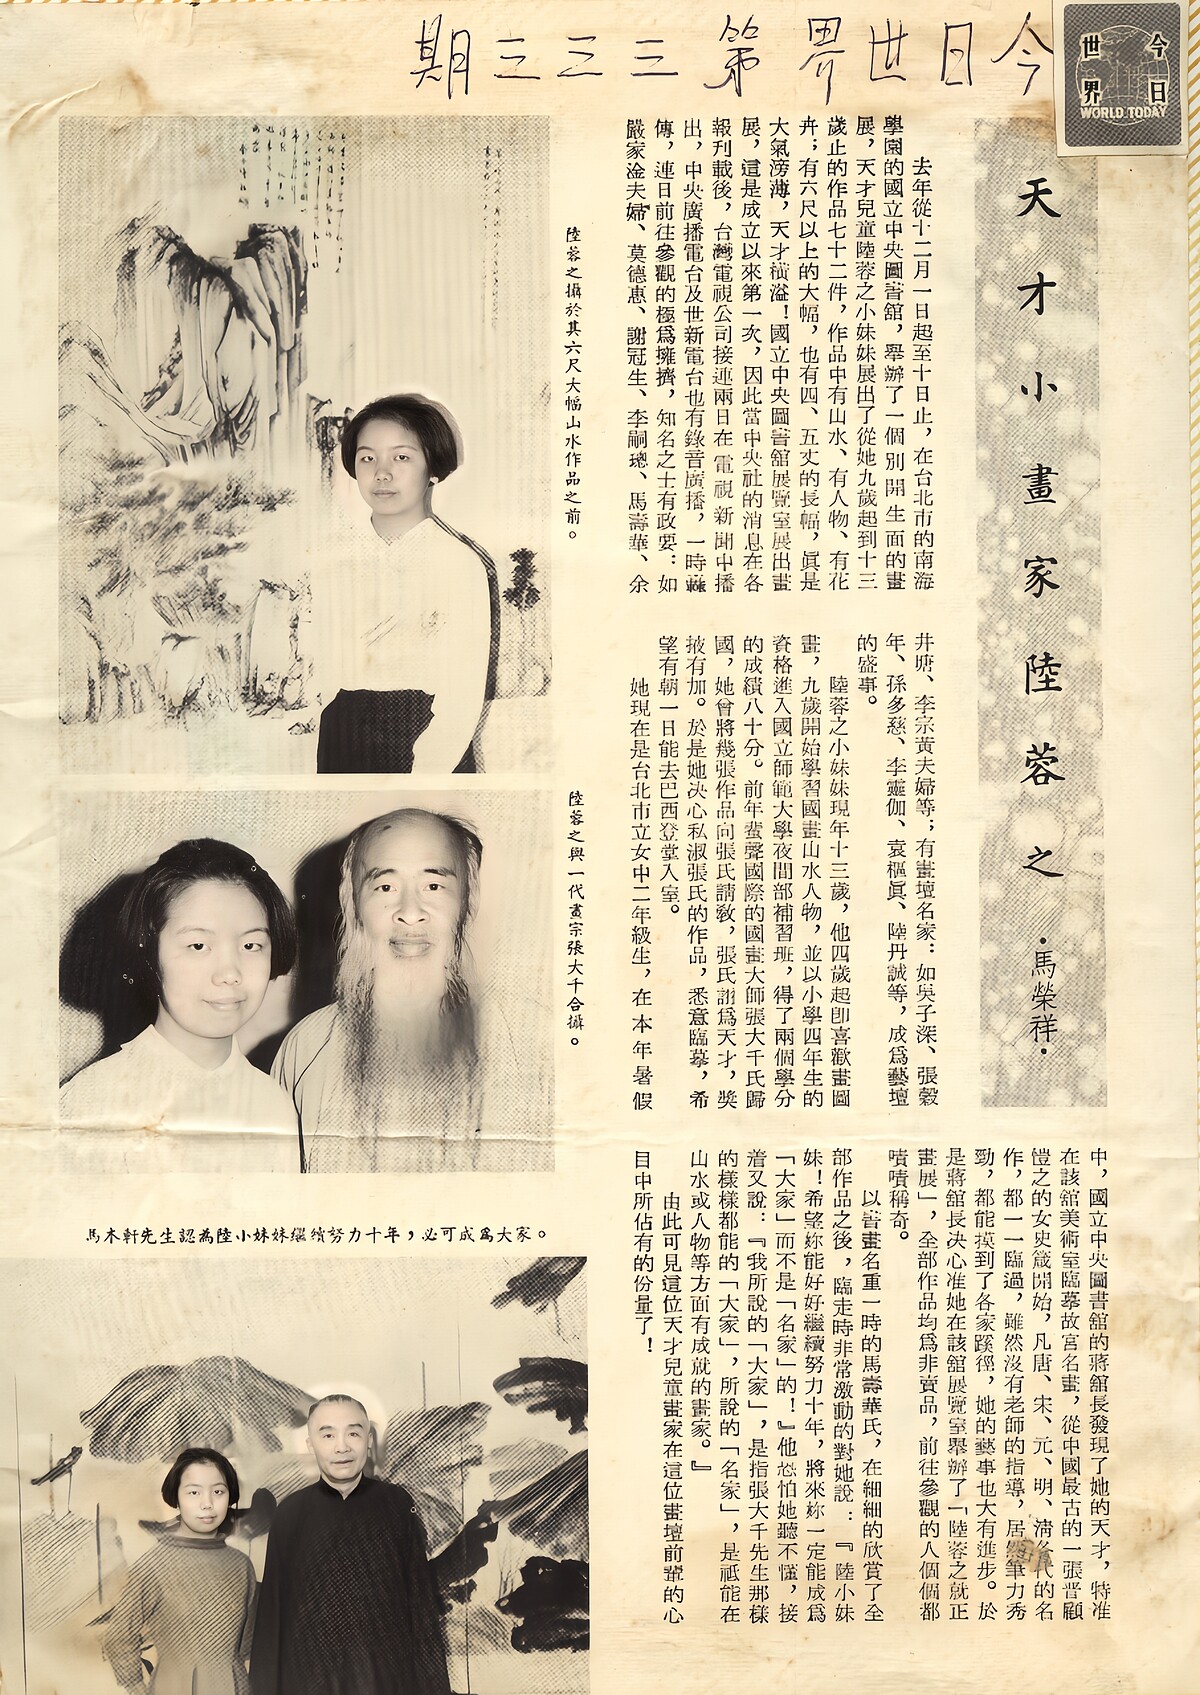 今日世界第三三三期
今日
世界
WORLD TODAY
天才小畫家陸蓉之
·馬榮祥·
去年從十二月一日起至十日止，在台北市的南海
學園的國立中央圖書館，舉辦了一個別開生面的畫
展，天才兒童陸蓉之小妹妹展出了從她九歲起到十三
歲止的作品七十二件，作品中有山水、有人物、有花
卉；有六尺以上的大幅，也有四、五丈的長幅，眞是
大氣滂薄，天才橫溢！國立中央圖書館展覽室展出畫
展，這是成立以來第一次，因此當中央社的消息在各
報刊載後，台灣電視公司接連兩日在電視新聞中播
出，中央廣播電台及世新電台也有錄音廣播，一時轟
傳，連日前往參觀的極爲擁擠，知名之士有政要：如
嚴家淦夫婦、莫德惠、謝冠生、李嗣璁、馬壽華、余
井塘、李宗黃夫婦等；有畫壇名家：如吳子深、張穀
年、孫多慈、李靈伽、袁樞眞、陸丹誠等，成爲藝壇
的盛事。
陸蓉之小妹妹現年十三歲，他四歲起卽喜歡畫圖
畫，九歲開始學習國畫山水人物，並以小學四年生的
資格進入國立師範大學夜間部補習班，得了兩個學分
的成績八十分。前年蜚聲國際的國畫大師張大千氏歸
國，她曾將幾張作品向張氏請敎，張氏詡爲天才，獎
掖有加。於是她決心私淑張氏的作品，悉意臨摹，希
望有朝一日能去巴西登堂入室。
她現在是台北市立女中二年級生，在本年暑假
中，國立中央圖書館的蔣館長發現了她的天才，特准
在該館美術室臨摹故宮名畫，從中國最古的一張晋顧
愷之的女史箴開始，凡唐、宋、元、明、清各代的名
作，都一一臨過，雖然沒有老師的指導，居然筆力秀
勁，都能摸到了各家蹊徑，她的藝事也大有進步。於
是蔣館長決心准她在該館展覽室舉辦了「陸蓉之就正
畫展」，全部作品均爲非賣品，前往參觀的人個個都
嘖嘖稱奇。
以書畫名重一時的馬壽華氏，在細細的欣賞了全
部作品之後，臨走時非常激動的對她說：『陸小妹
妹！希望妳能好好繼續努力十年，將來妳一定能成爲
「大家」而不是「名家」的！』他恐怕她聽不懂，接
着又說：『我所說的「大家」，是指張大千先生那樣
的樣樣都能的「大家」，所說的「名家」，是祗能在
山水或人物等方面有成就的畫家。』
由此可見這位天才兒童畫家在這位畫壇前輩的心
目中所佔有的份量了！
陸蓉之攝於其六尺大幅山水作品之前。
陸蓉之與一代畫宗張大千合攝。
馬木軒先生認為陸小妹妹繼續努力十年，必可成爲大家。